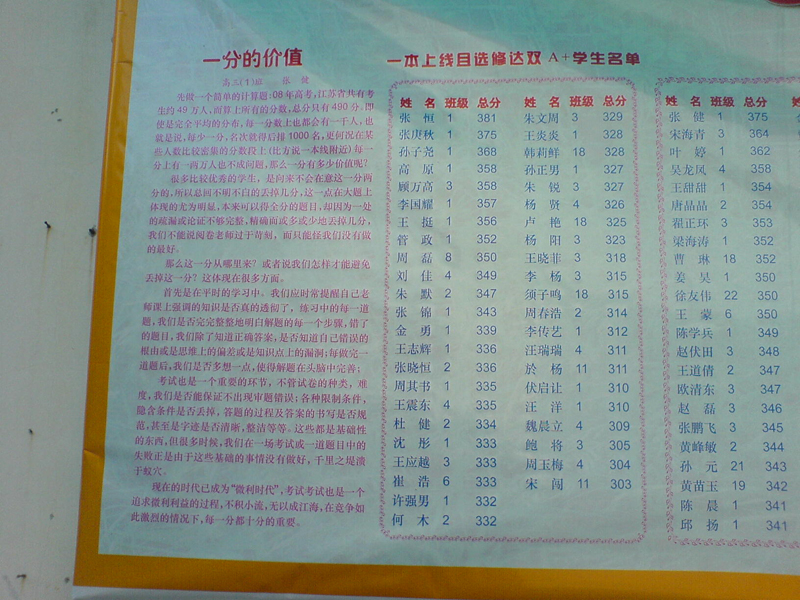 一分的价值
高三(1)班 张 健
先做一个简单的计算题:08年高考,江苏省共有考
生约49万人,而算上所有的分数,总分只有490分,即
使是完全平均的分布,每一分数上也都会有一千人,也
就是说,每少一分,名次就得后排1000名,更何况在某
些人数比较密集的分数段上(比方说一本线附近)每一
分上有一两万人也不成问题,那么一分有多少价值呢?
很多比较优秀的学生,是向来不会在意这一分两
分的,所以总回不明不白的丢掉几分,这一点在大题上
体现的尤为明显,本来可以得全分的题目,却因为一处
的疏漏或论证不够完整,精确而或多或少地丢掉几分,
我们不能说阅卷老师过于苛刻,而只能怪我们没有做
的最好。
那么这一分从哪里来?或者说我们怎样才能避免
丢掉这一分?这体现在很多方面。
首先是在平时的学习中。我们应时常提醒自己老
师课上强调的知识是否真的透彻了,练习中的每一道
题,我们是否完完整整地明白解题的每一个步骤,错了
的题目,我们除了知道正确答案,是否知道自己错误的
根由或是思维上的偏差或是知识点上的漏洞;每做完一
道题后,我们是否多想一点,使得解题在头脑中完善;
考试也是一个重要的环节,不管试卷的种类,难
度,我们是否能保证不出现审题错误;各种限制条件,
隐含条件是否丢掉,答题的过程及答案的书写是否规
范,甚至是字迹是否清晰,整洁等等。这些都是基础性
的东西,但很多时候,我们在一场考试或一道题目中的
失败正是由于这些基础的事情没有做好,千里之堤溃
于蚁穴。
现在的时代已成为“微利时代”,考试考试也是一个
追求微利利益的过程,不积小流,无以成江海,在竞争如
此激烈的情况下,每一分都十分的重要。
一本上线目选修达双 A+学生名单
姓 名 班级 总分
张 恒 1 381
张庚秋 1 375
孙子尧 1 368
高 原 1 358
顾万高 3 358
李国耀 1 357
王 挺 1 356
管 政 1 352
周 磊 8 350
刘 佳 4 349
朱 默 2 347
张 锦 1 343
金 勇 1 339
王志辉 1 336
张晓恒 2 336
周其书 1 335
王震东 4 335
杜 健 2 334
沈 彤 1 333
王应越 3 333
崔 浩 6 333
许强男 1 332
何 木 2 332
姓 名 班级 总分
朱文周 3 329
王炎炎 1 328
韩莉鲜 18 328
孙正男 1 327
朱 锐 3 327
杨 贤 4 326
卢 艳 18 325
杨 阳 3 323
王晓菲 3 318
李 杨 3 315
须子鸣 18 315
周春浩 2 314
李传艺 1 312
汪瑞瑞 4 311
於 杨 11 311
伏启让 1 310
汪 洋 1 310
魏晨立 4 309
鲍 将 3 305
周玉梅 4 304
宋 闯 11 303
姓 名 班级 总分
张 健 1 375
宋海青 3 364
叶 婷 1 362
吴龙风 4 358
王甜甜 1 354
唐晶晶 2 354
翟正环 3 353
梁海涛 1 352
曹 琳 18 352
姜 昊 1 350
徐友伟 22 350
王 蒙 6 350
陈学兵 1 349
赵伏田 3 348
王道倩 2 347
欧清东 3 347
赵 磊 3 346
张鹏飞 3 345
黄峰敏 2 344
孙 元 21 343
黄苗玉 19 342
陈 晨 1 341
邱 扬 1 341